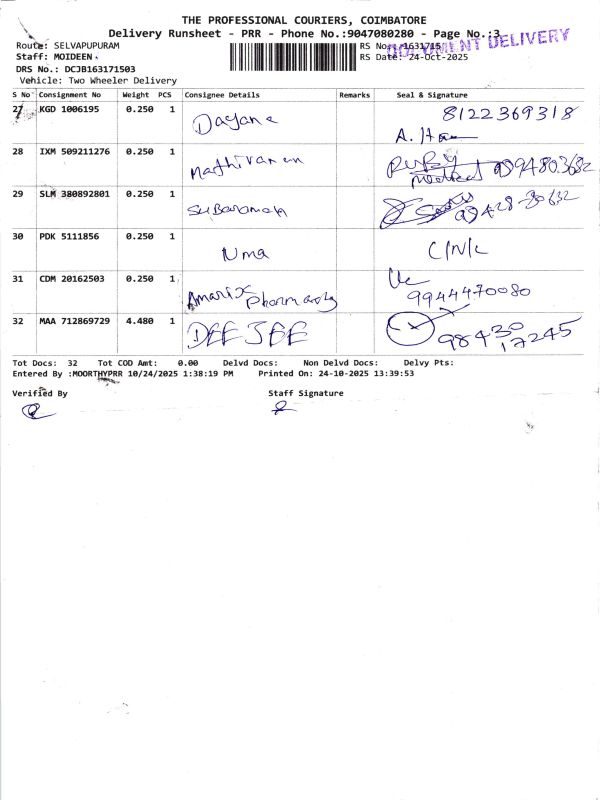 THE PROFESSIONAL COURIERS, COIMBATORE
Delivery Runsheet - PRR - Phone No.:9047080280 - Page No.:3
DOCUMENT DELIVERY
Route: SELVAPUPURAM RS No: 1631715
Staff: MOIDEEN RS Date: 24-Oct-2025
DRS No.: DCJB163171503
Vehicle: Two Wheeler Delivery
S No Consignment No Weight PCS Consignee Details Remarks Seal & Signature
27 KGD 1006195 0.250 1 Dayana 8122369318
28 IXM 509211276 0.250 1 Mathivanan Ruby Medical
29 SLM 380892801 0.250 1
30 PDK 5111856 0.250 1 Uma
31 CDM 20162503 0.250 1 Pharmacy 9944470080
32 MAA 712869729 4.480 1 DEE JEE 98430
17245
Tot Docs: 32 Tot COD Amt: 0.00 Delvd Docs: Non Delvd Docs: Delvy Pts:
Entered By :MOORTHYPRR 10/24/2025 1:38:19 PM Printed On: 24-10-2025 13:39:53
Verified By Staff Signature